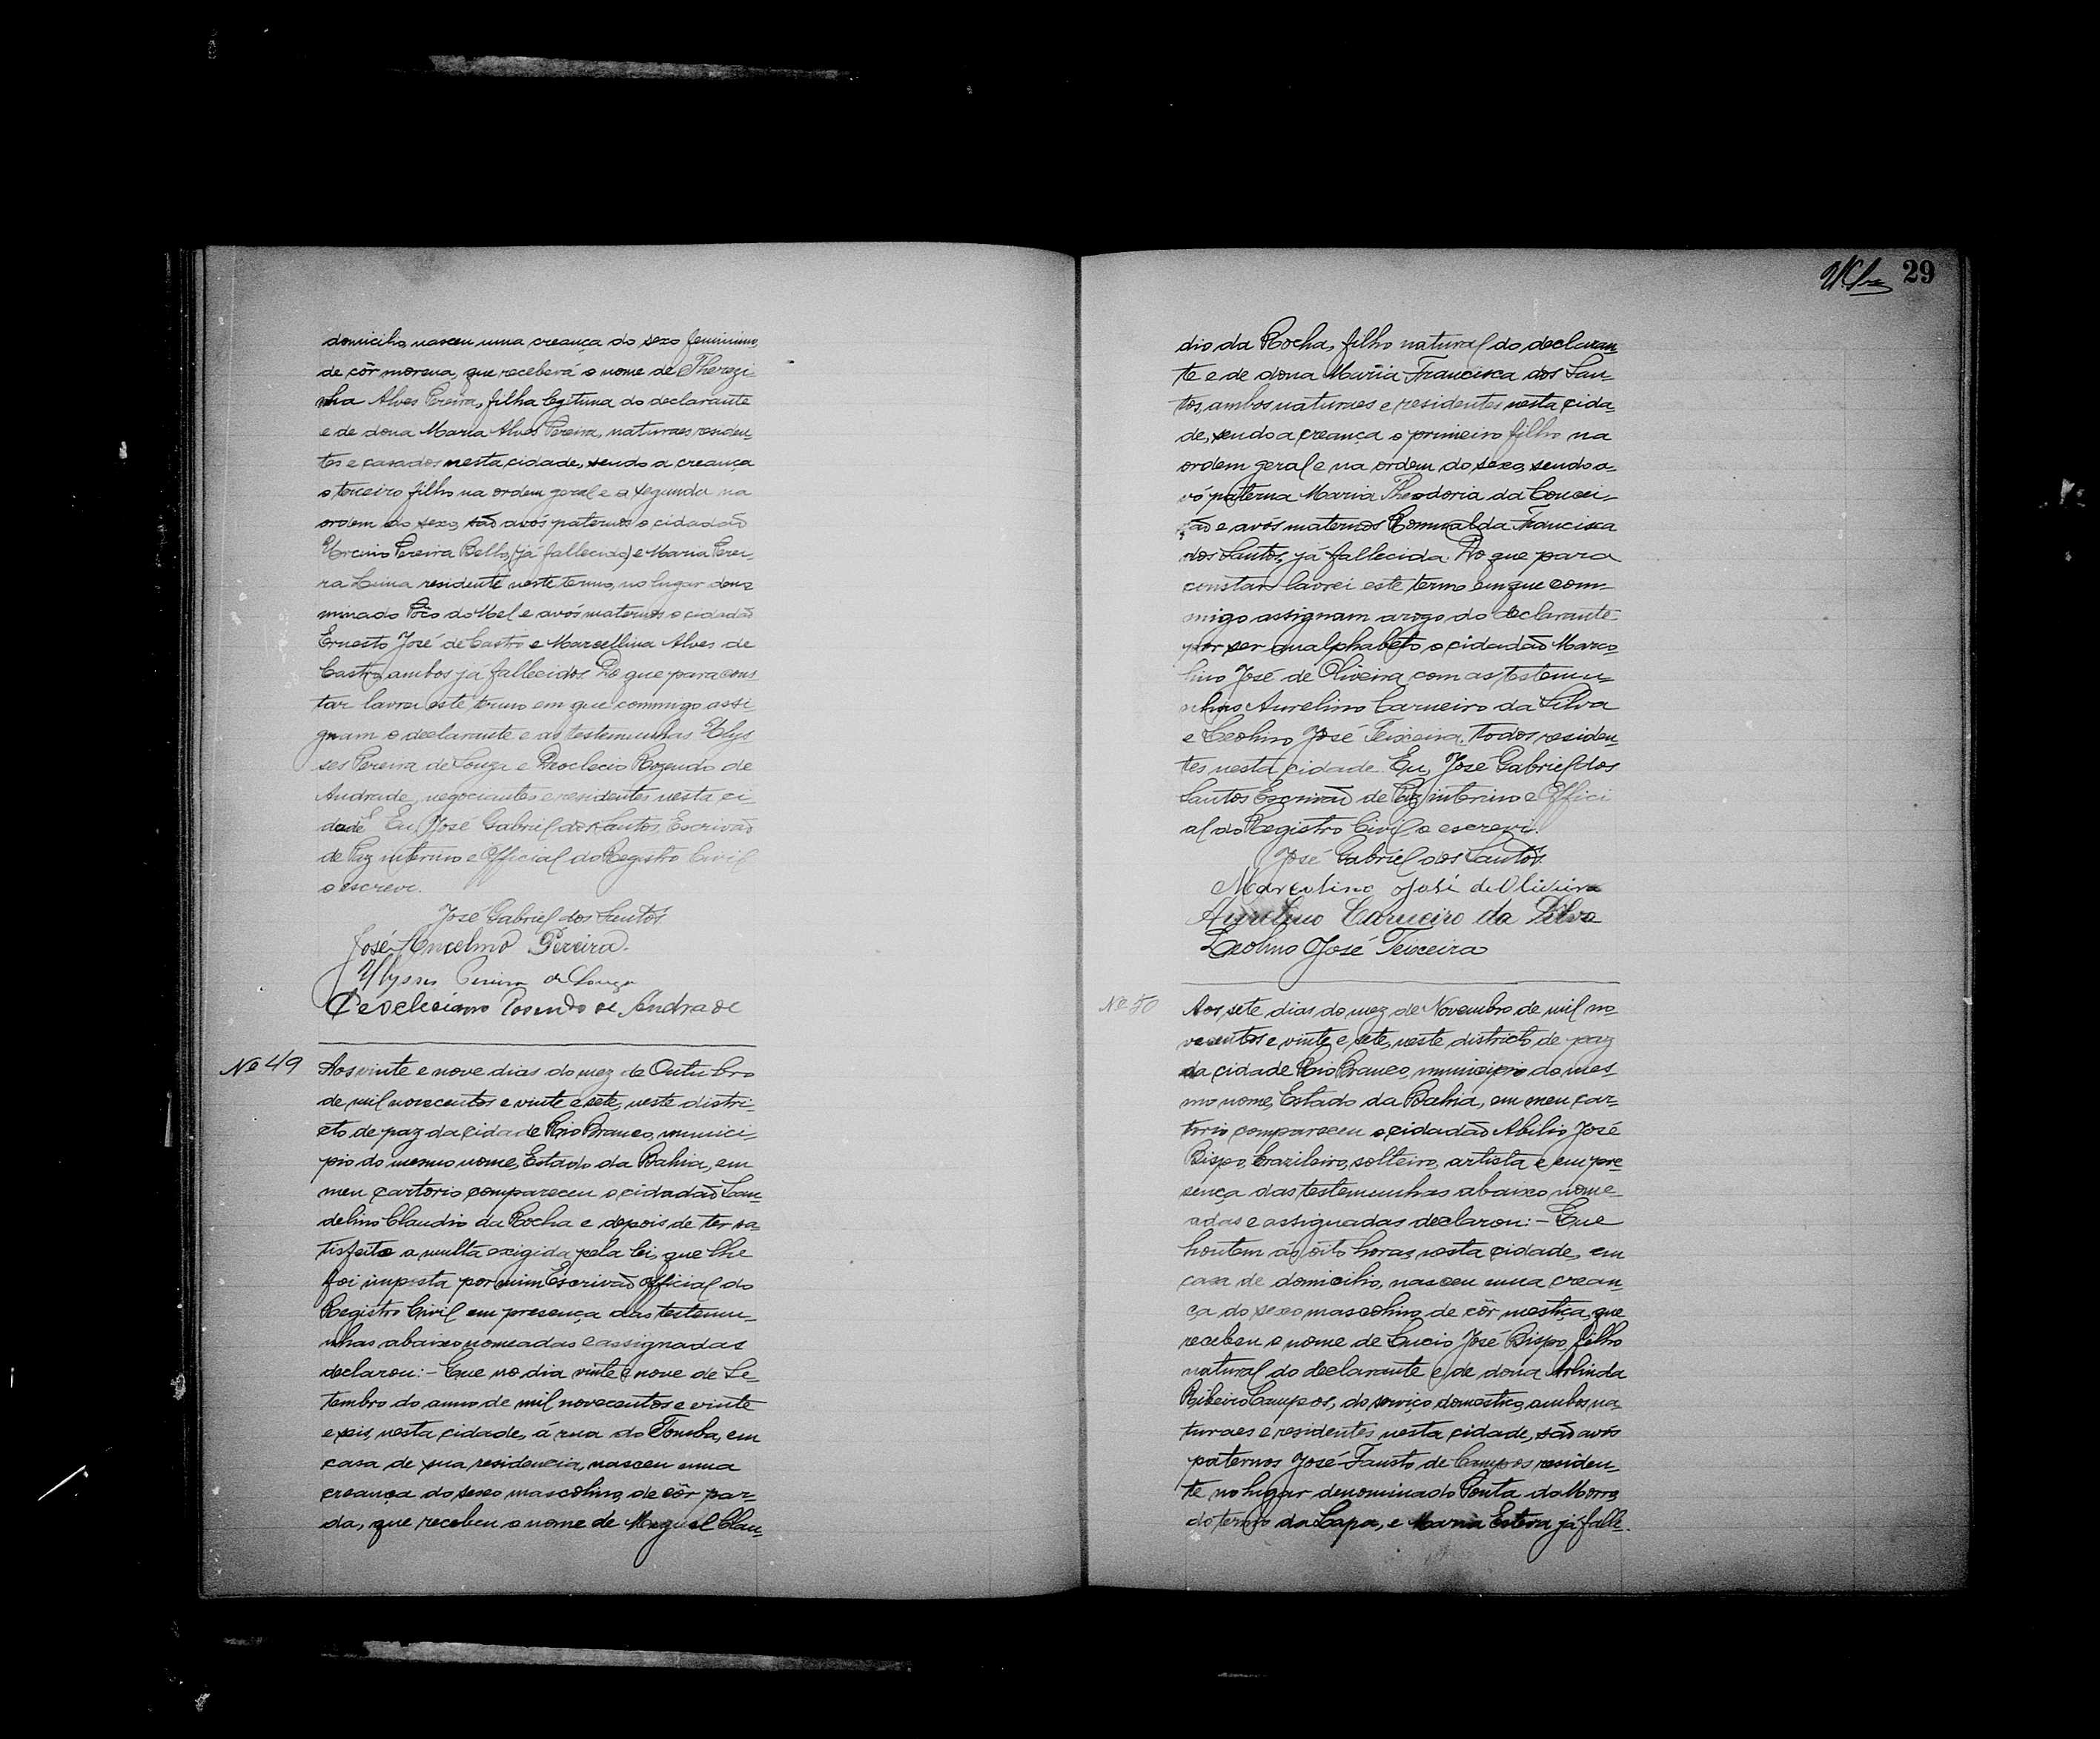 domicilio nasceu uma creança do sexo feminino,
de côr morena, que receberá o nome de Therezi-
nha Alves Pereira, filha legitima do declarante
e de dona Maria Alves Pereira, naturaes residen-
tes e casados nesta cidade, sendo a creança
o terceiro filho na ordem geral e a segunda na
ordem do sexo, são avós paternos o cidadão
Pereira Bello, (já fallecido) e Maria Perei-
ra Lima residente neste termo, no lugar deno-
minado Poço do Mel e avós maternos o cidadão
Ernesto José de Castro e Marcellina Alves de
Castro, ambos já fallecidos. Do que para cons-
tar lavrei este termo em que commigo assi-
gnam o declarante e as testemunhas Ulys-
ses Pereira de Souza e Deoclecio Rozendo de
Andrade, negociantes e residentes nesta ci-
dade. Eu, José Gabriel dos Santos, Escrivão
de Paz interino e Official do Registro Civil
o escrevi.
José Gabriel dos Santos
José Ancelmo Pereira.
Ulysses Pereira de Souza
Deocleciano Rosendo de Andrade
Nº 49
Aos vinte e nove dias do mez de Outubro
de mil novecentos e vinte e sete, neste distri-
cto de paz da cidade Rio Branco, munici-
pio do mesmo nome, Estado da Bahia, em
meu cartorio compareceu o cidadão San-
delino Claudio da Rocha e depois de ter sa-
tisfeito a multa exigida pela lei, que lhe
foi imposta por mim Escrivão official do
Registro Civil em presença das testemu-
nhas abaixo nomeadas e assignadas
declarou: - Que no dia vinte e nove de Se-
tembro do anno de mil novecentos e vinte
e seis, nesta cidade, á rua do Tomba, em
casa de sua residencia, nasceu uma
creança do sexo mascolino, de côr par-
da, que recebeu o nome de Miguel Clau-
29
dio da Rocha, filho natural do declaran-
te e de dona Maria Francisca dos San-
tos, ambos naturaes e residentes nesta cida-
de, sendo a creança o primeiro filho na
ordem geral e na ordem do sexo, sendo a-
vó paterna Maria Theodoria da Concei-
ção e avós maternos Romualda Francisca
dos Santos, já fallecida. Do que para
constar lavrei este termo em que com-
migo assignam a rogo do declarante
por ser analphabeto, o cidadão Marco-
lino José de Oliveira, com as testemu-
nhas Aurelino Carneiro da Silva
e Leolino José Teixeira. todos residen-
tes nesta cidade. Eu, José Gabriel dos
Santos Escrivão de Paz interino e Offici-
al do Registro Civil o escrevi.
José Gabriel dos Santos.
Marculino José de Oliveira
Aurelino Carneiro da Silva
Leolino José Teixeira
Nº 50
Aos sete dias do mez de Novembro de mil no-
vecentos e vinte e sete, neste districto de paz
da cidade Rio Branco, municipio do mes-
mo nome, Estado da Bahia, em meu car-
torio compareceu o cidadão Abilio José
Bispo, brazileiro, solteiro, artista e em pre-
sença das testemunhas abaixo nome-
adas e assignadas declarou: - Que
hontem ás oito horas, nesta cidade, em
casa de domicilio, nasceu uma crean-
ça do sexo mascolino, de côr mestiça, que
recebeu o nome de Lucio José Bispo, filho
natural do declarante e de dona Arlinda
Ribeiro Campos, do serviço domestico, ambos na-
turaes e residentes nesta cidade, são avós
paternos José Fausto de Campos residen-
te no lugar denominado Ponta do Morro,
do termo da Lapa, e Maria Esteva já falle-